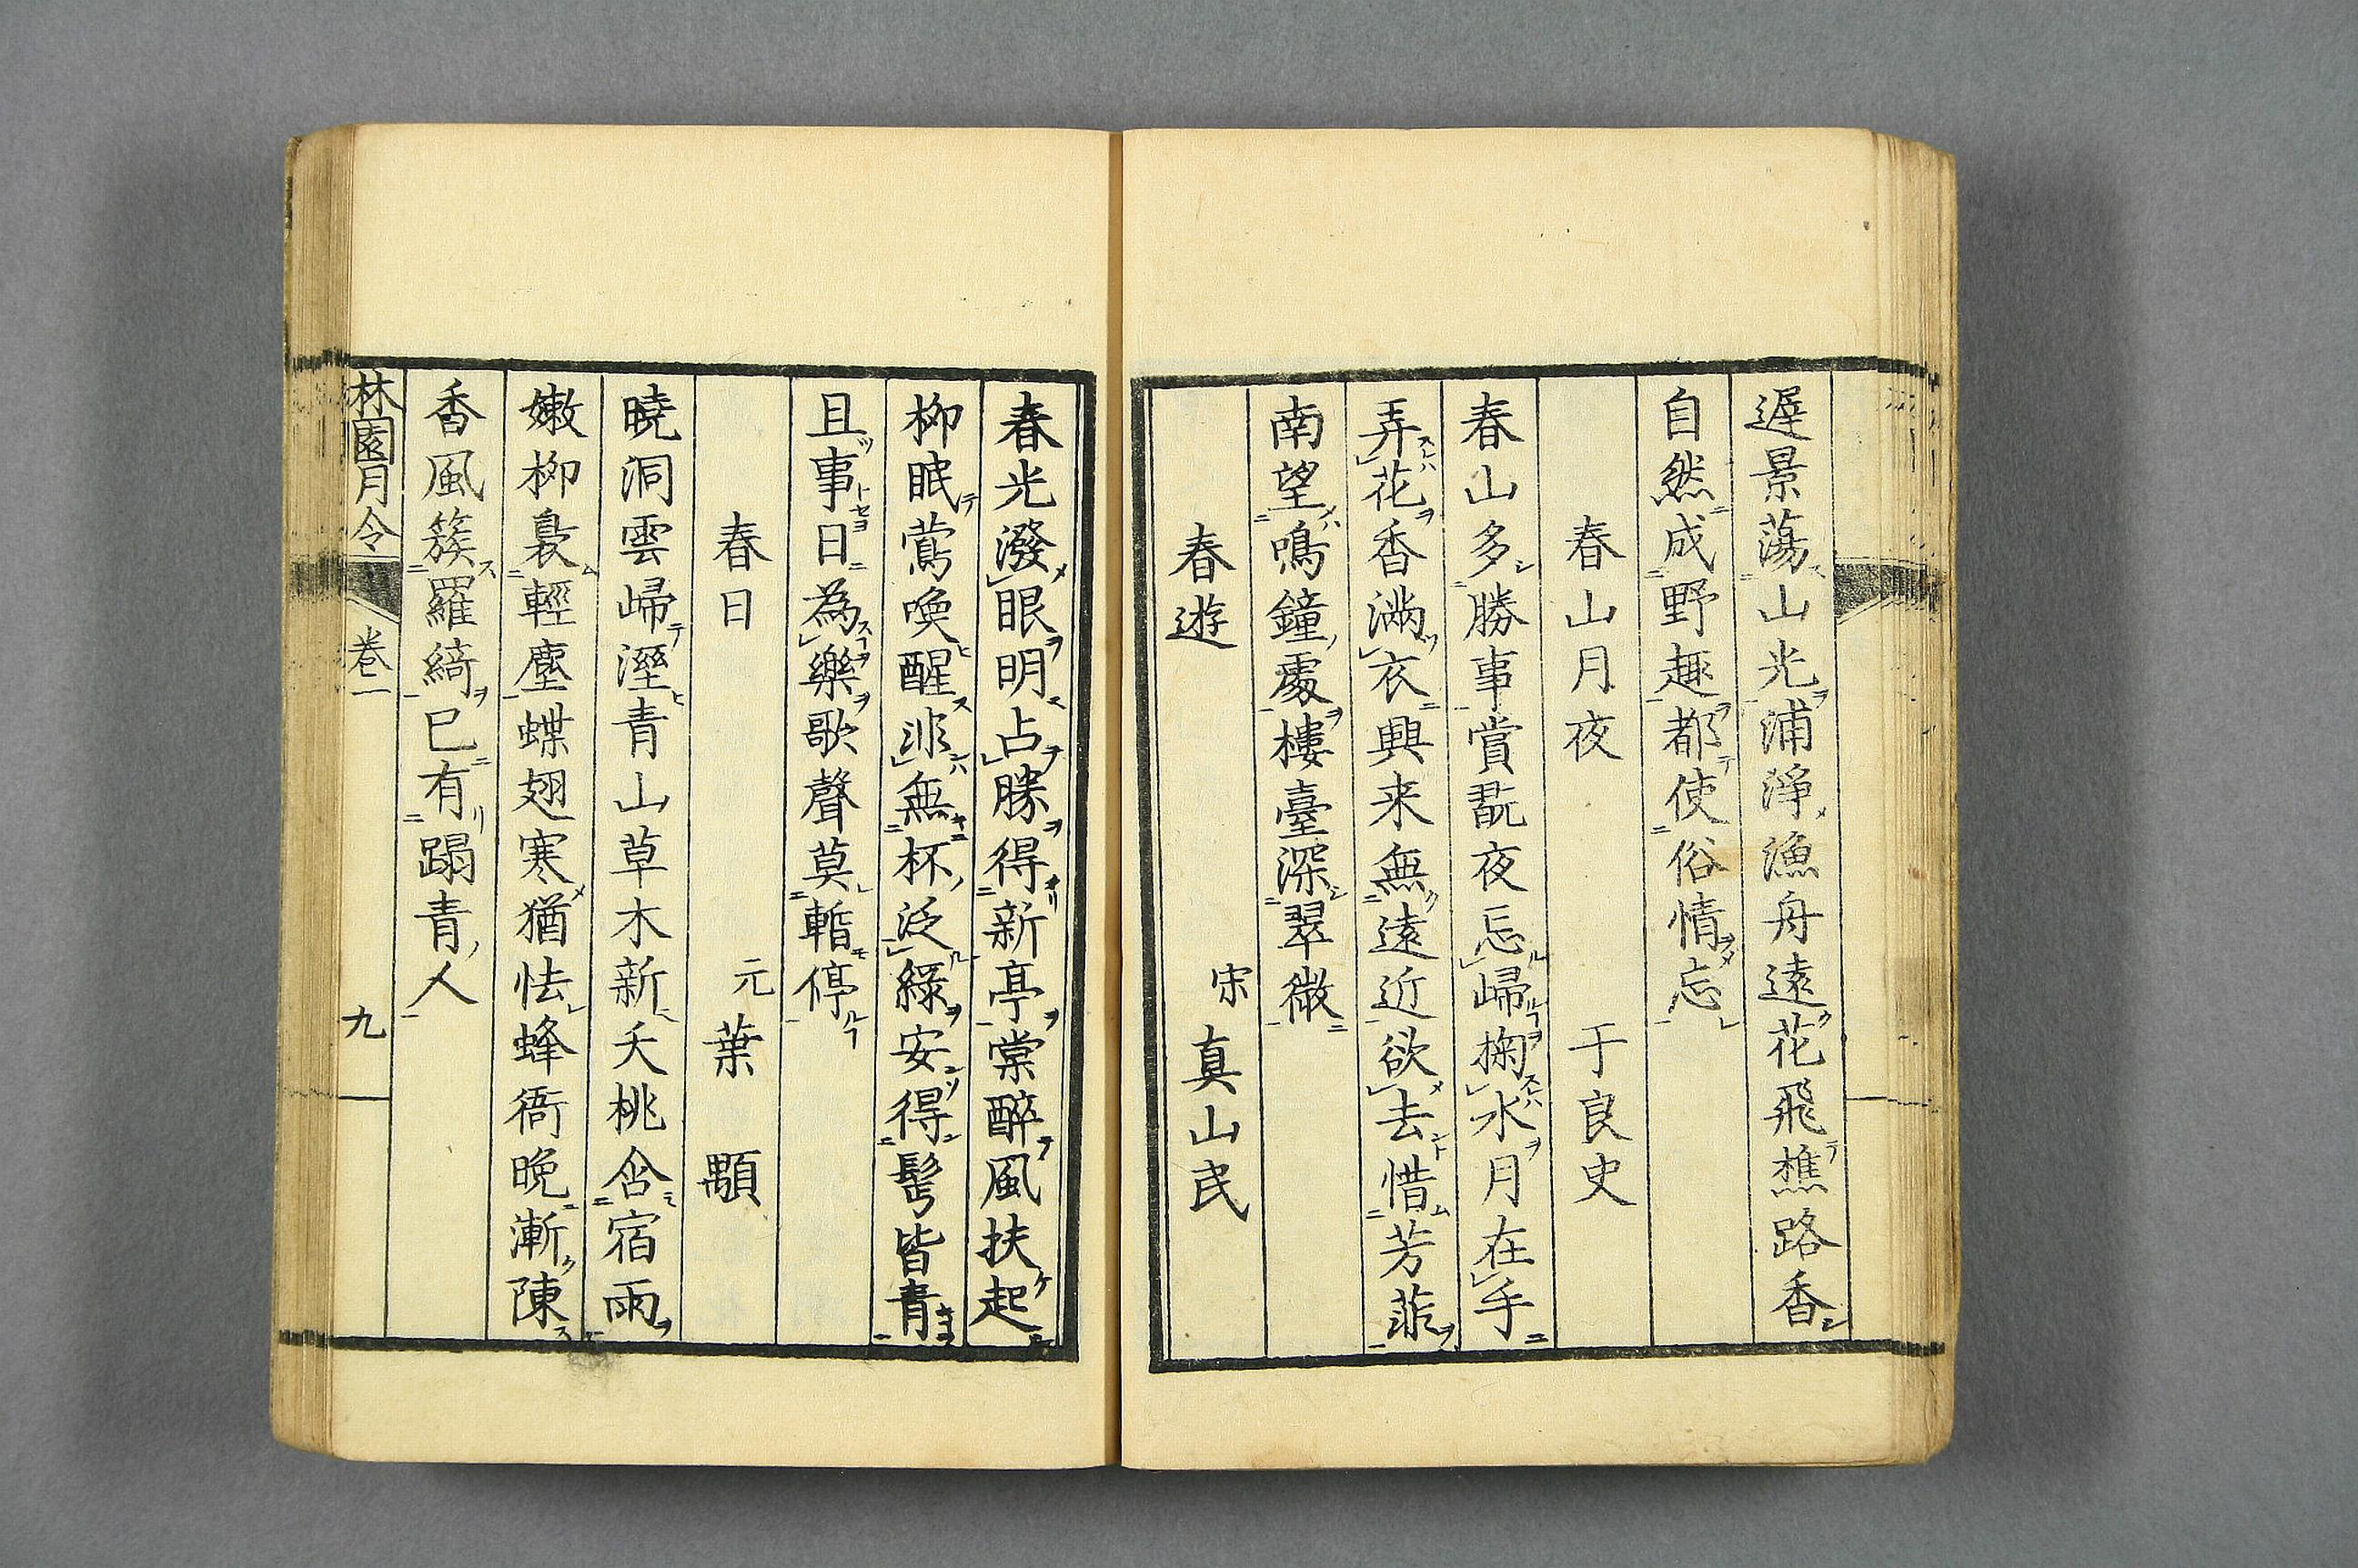 遅景蕩山光浦淨漁舟遠花飛樵路香
自然成野趣都使俗情忘
春山月夜 于良史
春山多勝事賞翫夜忘歸掬水月在手
弄花香滿衣興来無遠近欲去惜芳菲
南望鳴鐘處樓臺深翠微
春遊 宋 真山民
春光潑眼明占勝得新亭棠醉風扶起
柳眠鶯喚醒非無杯泛綠安得髩皆青
且事日為樂歌聲莫暫停
春日 元 葉顒
曉洞雲歸溼青山草木新夭桃含宿雨
嫩柳裊輕塵蝶翅寒猶怯蜂衙晚漸陳
香風簇羅綺已有蹋青人
林園月令 卷一 九